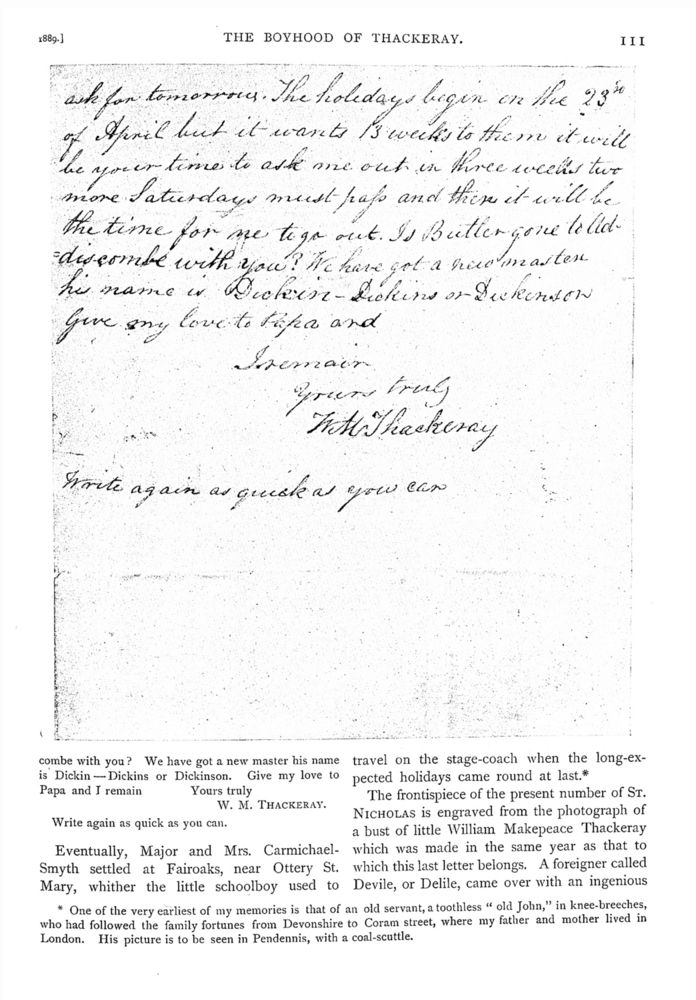 1889.] THE BOYHOOD OF THACKERAY. 111
ask for tomorrow. The holidays begin on the 23rd
of April but it wants 13 weeks to them it will
be your time to ask me out in three weeks two
more Saturdays must pass and then it will be
the time for me to go out. Is Butler gone to Ad-
=discombe with you? We have got a new master
his name is Dickin - Dickins or Dickinson
Give my love to Papa and
I remain
Yours truly
W M Thackeray
Write again as quick as you can
combe with you? We have got a new master his name
is Dickin — Dickins or Dickinson. Give my love to
Papa and I remain Yours truly
W. M. THACKERAY.
Write again as quick as you can.
Eventually, Major and Mrs. Carmichael-
Smyth settled at Fairoaks, near Ottery St.
Mary, whither the little schoolboy used to
travel on the stage-coach when the long-ex-
pected holidays came round at last.*
The frontispiece of the present number of ST.
NICHOLAS is engraved from the photograph of
a bust of little William Makepeace Thackeray
which was made in the same year as that to
which this last letter belongs. A foreigner called
Devile, or Delile, came over with an ingenious
* One of the very earliest of my memories is that of an old servant, a toothless "old John," in knee-breeches,
who had followed the family fortunes from Devonshire to Coram street, where my father and mother lived in
London. His picture is to be seen in Pendennis, with a coal-scuttle.